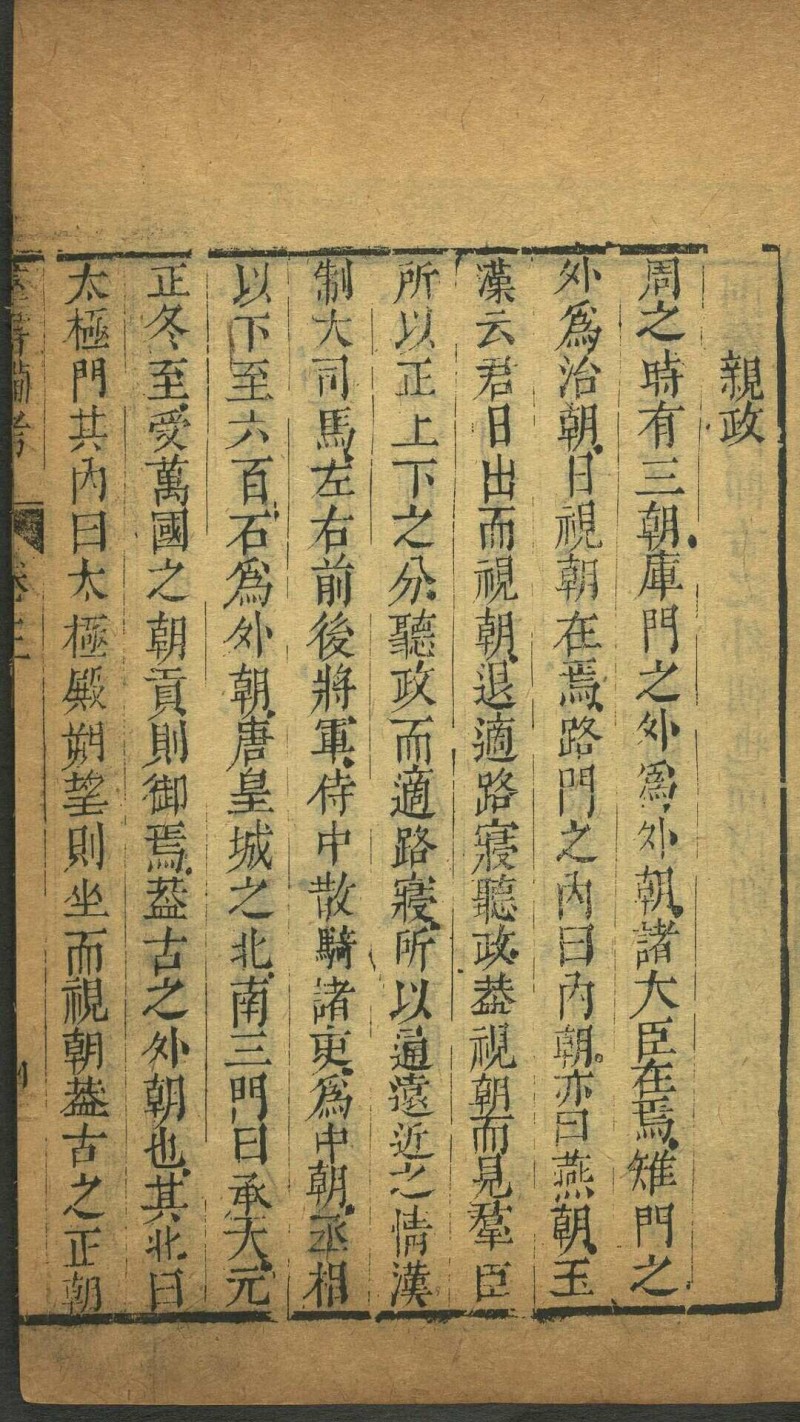 親政
周之時有三朝庫門之外爲外朝諸大臣在焉雉門之
外爲治朝日視朝在焉路門之内曰内朝亦曰燕朝玉
藻云君日出而視朝退適路寢聽政葢視朝而見羣臣
所以正上下之分聽政而適路寢所以通遠近之情漢
制大司馬左右前後將軍侍中散騎諸吏爲中朝丞相
以下至六百石爲外朝唐皇城之北南三門曰承天元
正冬至受萬國之朝貢則御焉葢古之外朝也其北曰
太極門其内曰太極殿朔望則坐而視朝葢古之正朝